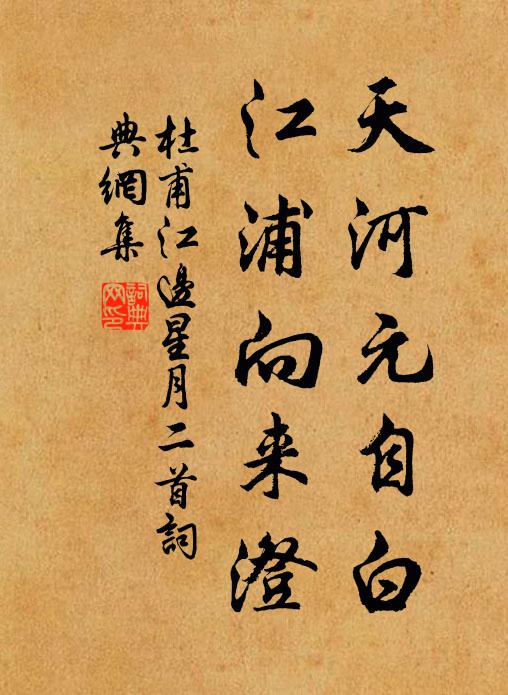 天河元自白
江浦向来澄
杜甫江邊星月二首詞
典網集
詞典網印